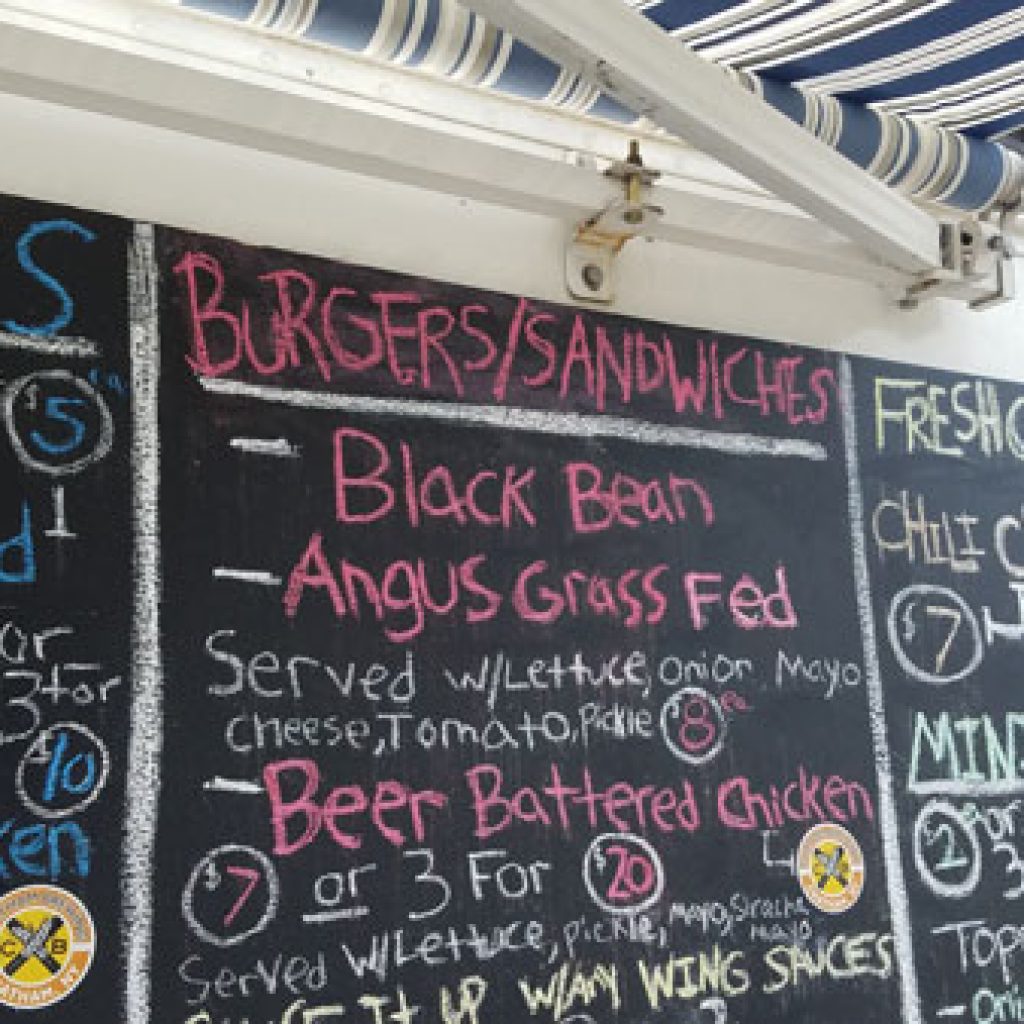 S
$5 ea
BURGERS/SANDWICHES
- Black Bean
- Angus Grass Fed
Served w/Lettuce, onion Mayo
cheese, Tomato, Pickle $8 ea
- Beer Battered Chicken
$7 or 3 For $20
Served w/Lettuce, pickle, mayo, Siracha mayo
IT UP W/ANY WING SAUCES
or
3 for
$10
ken
CB
FRESH
CHILI
$7
MIN
$2 or
3
Top
- Oni